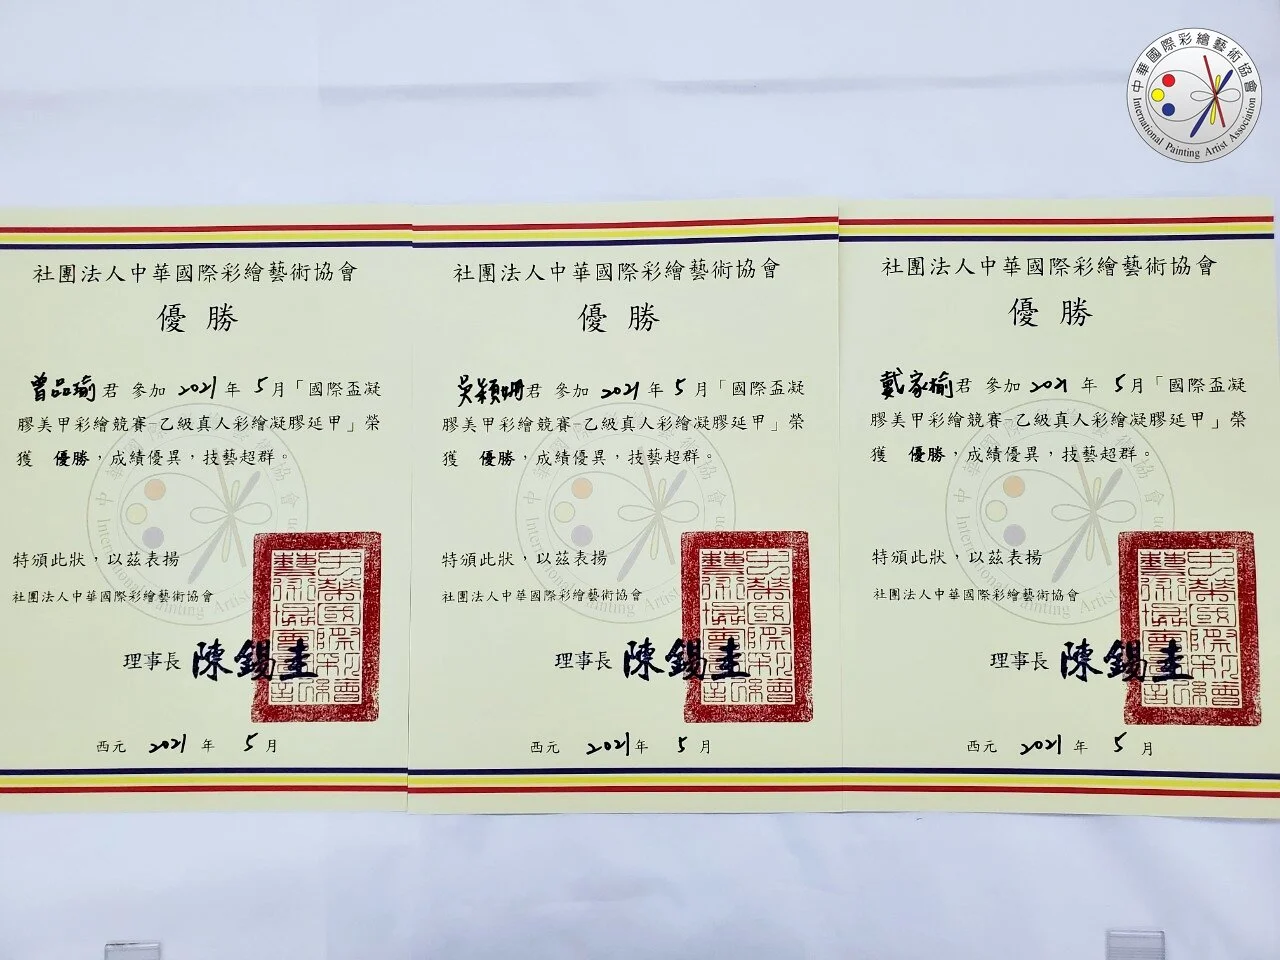 中華國際彩繪藝術協會
International Painting Artist Association
社團法人中華國際彩繪藝術協會
優勝
曾品瑜君 參加 2021 年 5月「國際盃凝
膠美甲彩繪競賽-乙級真人彩繪凝膠延甲」榮
獲 優勝，成績優異，技藝超群。
特頒此狀，以茲表揚
社團法人中華國際彩繪藝術協會
理事長 陳錫圭
西元 2021 年 5 月
社團法人中華國際彩繪藝術協會
優勝
吳穎姍君 參加 2021 年 5月「國際盃凝
膠美甲彩繪競賽-乙級真人彩繪凝膠延甲」榮
獲 優勝，成績優異，技藝超群。
特頒此狀，以茲表揚
社團法人中華國際彩繪藝術協會
理事長 陳錫圭
西元 2021 年 5 月
社團法人中華國際彩繪藝術協會
優勝
戴家榆君 參加 2021 年 5月「國際盃凝
膠美甲彩繪競賽-乙級真人彩繪凝膠延甲」榮
獲 優勝，成績優異，技藝超群。
特頒此狀，以茲表揚
社團法人中華國際彩繪藝術協會
理事長 陳錫圭
西元 2021 年 5 月